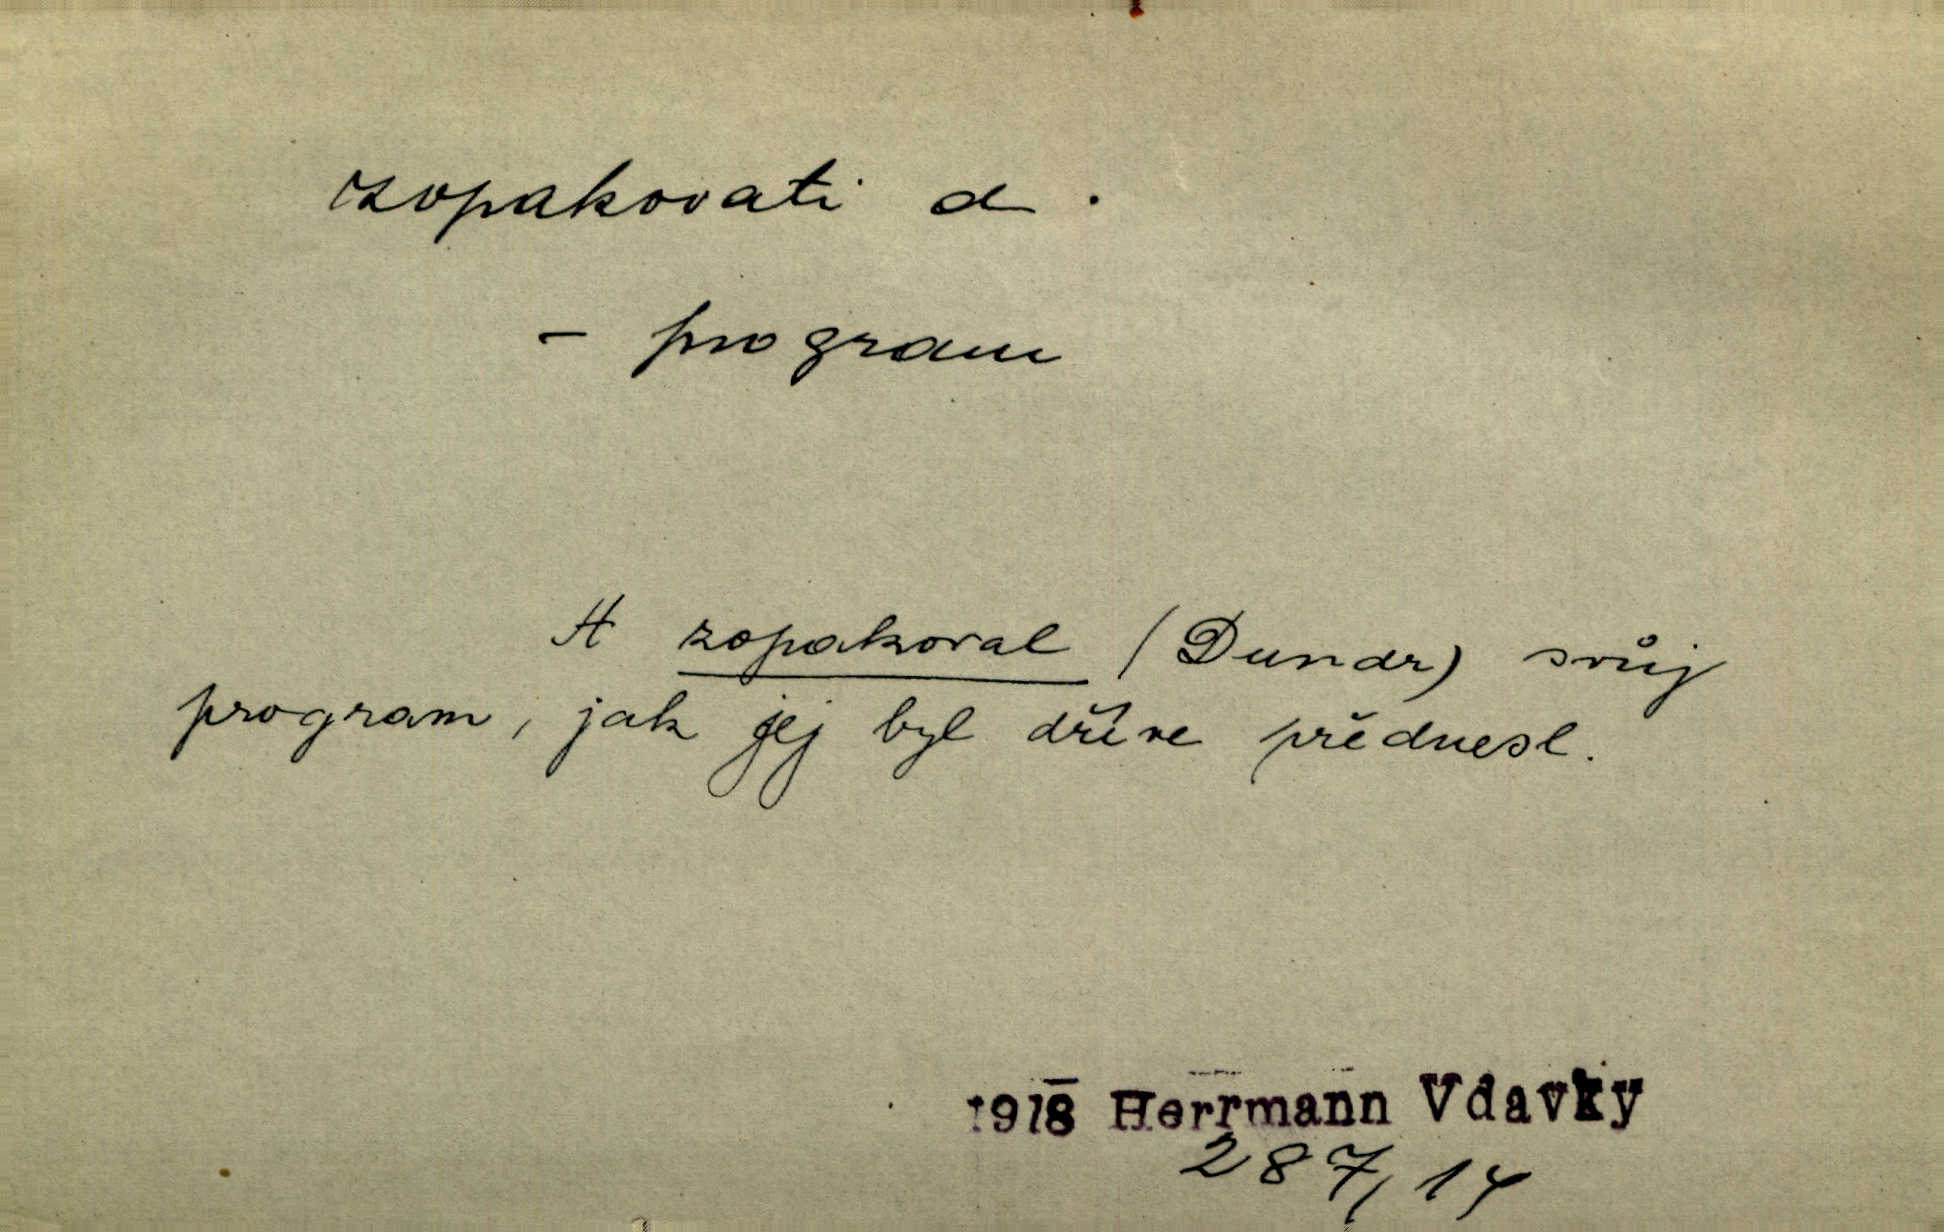 zopakovati d.
- program
A zopakoval (Dundr) svůj
program, jak jej byl dříve přednesl.
1918 Herrmann Vdavky
287, 14